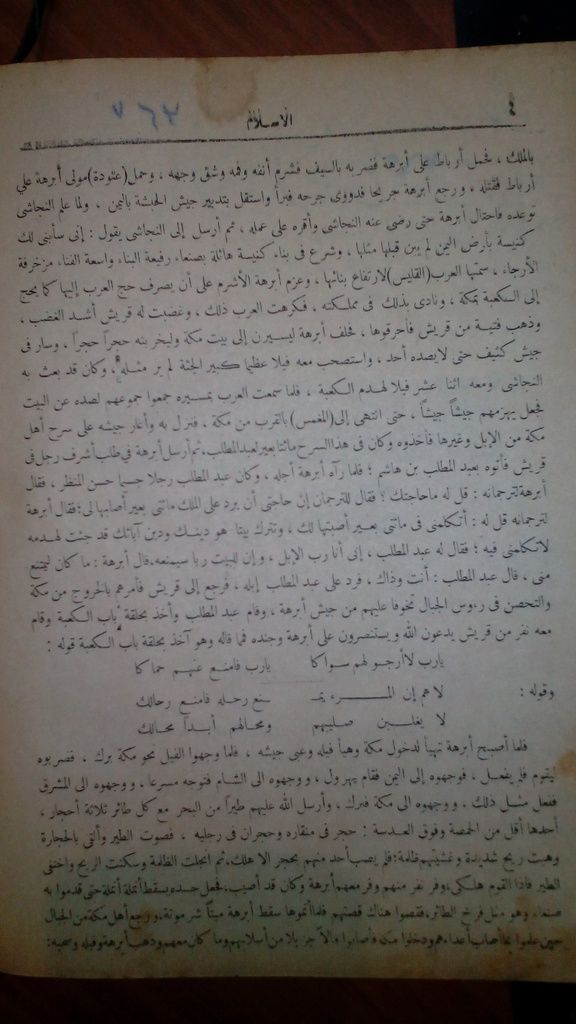 ٤
الاسلام
٧٦٢
بالملك ، فحمل أرباط على أبرهة فضربه بالسيف فشرم أنفه وفمه وشق وجهه ، وحمل (عتودة) مولى أبرهة على
أرباط فقتله ، ورجع أبرهة جريحا فدووى جرحه فبرأ واستقل بتدبير جيش الحبشة باليمن ، ولما علم النجاشى
توعده فاحتال أبرهة حتى رضى عنه النجاشى وأقره على عمله ، ثم أرسل إلى النجاشى يقول : إنى سأبنى لك
كنيسة بأرض اليمن لم يبن قبلها مثلها ، وشرع فى بناء كنيسة هائلة بصنعاء رفيعة البناء واسعة الفناء مزخرفة
الأرجاء ، سمتها العرب (القليس) لارتفاع بنائها ، وعزم أبرهة الأشرم على أن يصرف حج العرب إليها كما يحج
إلى الكعبة بمكة ، ونادى بذلك فى مملكته ، فكرهت العرب ذلك ، وغضبت له قريش أشد الغضب ،
وذهب فتية من قريش فأحرقوها ، فحلف أبرهة ليسيرن إلى بيت مكة وليخربنه حجراً حجراً ، وسار فى
جيش كثيف حتى لايصده أحد ، واستصحب معه فيلا عظيما كبير الجثة لم ير مثله ، وكان قد بعث به
النجاشى ومعه اثنا عشر فيلا لهدم الكعبة ، فلما سمعت العرب بمسيره جمعوا جموعهم لصده عن البيت
فجعل يهزمهم جيشاً جيشاً ، حتى انتهى إلى (المغمس) بالقرب من مكة ، فنزل به وأغار جيشه على سرح أهل
مكة من الإبل وغيرها فأخذوه وكان فى هذا السرح مائتا بعير لعبد المطلب، ثم أرسل أبرهة فى طلب أشرف رجل فى
قريش فأتوه بعبد المطلب بن هاشم ؛ فلما رآه أبرهة أجله ، وكان عبد المطلب رجلا جسيما حسن المنظر ، فقال
أبرهة لترجمانه : قل له ماحاجتك ؟ فقال للترجمان إن حاجتى أن يرد على الملك مائتى بعير أصابها لى؛ فقال أبرهة
لترجمانه قل له : أتكلمنى فى مائتى بعير أصبتها لك ، وتترك بيتا هو دينك ودين آبائك قد جئت لهدمه
لاتكلمنى فيه ؛ فقال له عبد المطلب ، إنى أنا رب الإبل ، وإن للبيت ربا سيمنعه، قال أبرهة : ما كان ليمتنع
منى ، قال عبد المطلب : أنت وذاك ، فرد على عبد المطلب إبله ، فرجع إلى قريش فأمرهم بالخروج من مكة
والتحصن فى رءوس الجبال تخوفا عليهم من جيش أبرهة ، وقام عبد المطلب وأخذ بحلقة باب الكعبة وقام
معه نفر من قريش يدعون الله ويستنصرون على أبرهة وجنده فما قاله وهو آخذ بحلقة باب الكعبة قوله :
يارب لاأرجو لهم سواكا يارب فامنع عنهم حماكا
وقوله : لاهم إن المـــرء يمـ ـنع رحله فامنع رحالك
لا يغلبن صليبهم ومحالهم أبداً محالك
فلما أصبح أبرهة تهيأ لدخول مكة وهيأ فيله وعبى جيشه ، فلما وجهوا الفيل نحو مكة برك ، فضربوه
ليقوم فلم يفعل ، فوجهوه إلى اليمن فقام يهرول ، ووجهوه الى الشام فتوجه مسرعا ، ووجهوه الى المشرق
ففعل مثل ذلك ، ووجهوه الى مكة فبرك ، وأرسل الله عليهم طيراً من البحر مع كل طائر ثلاثة أحجار ،
أحدها أقل من الحمصة وفوق العدسة : حجر فى منقاره وحجران فى رجليه ، فصوت الطير وألقى بالحجارة
وهبت ريح شديدة وغشيتهم ظلمة؛ فلم يصب أحد منهم بحجر الا هلك، ثم انجلت الظلمة وسكنت الريح واختفى
الطير فاذا القوم هلكى، وفر نفر منهم وفر معهم أبرهة وكان قد أصيب، فجعل جسده يسقط أنملة أنملة حتى قدموا به
صنعاء وهو مثل فرخ الطائر، فقصوا هناك قصتهم فلما أتموها سقط أبرهة ميتاً شر موتة، ورجع أهل مكة من الجبال
حين علموا بما أصاب أعداءهم ودخلوا مكة فأصابوا مالاً جزيلا من أسلابهم وما كان معهم وذهب أبرهة وفيله وصحبه :